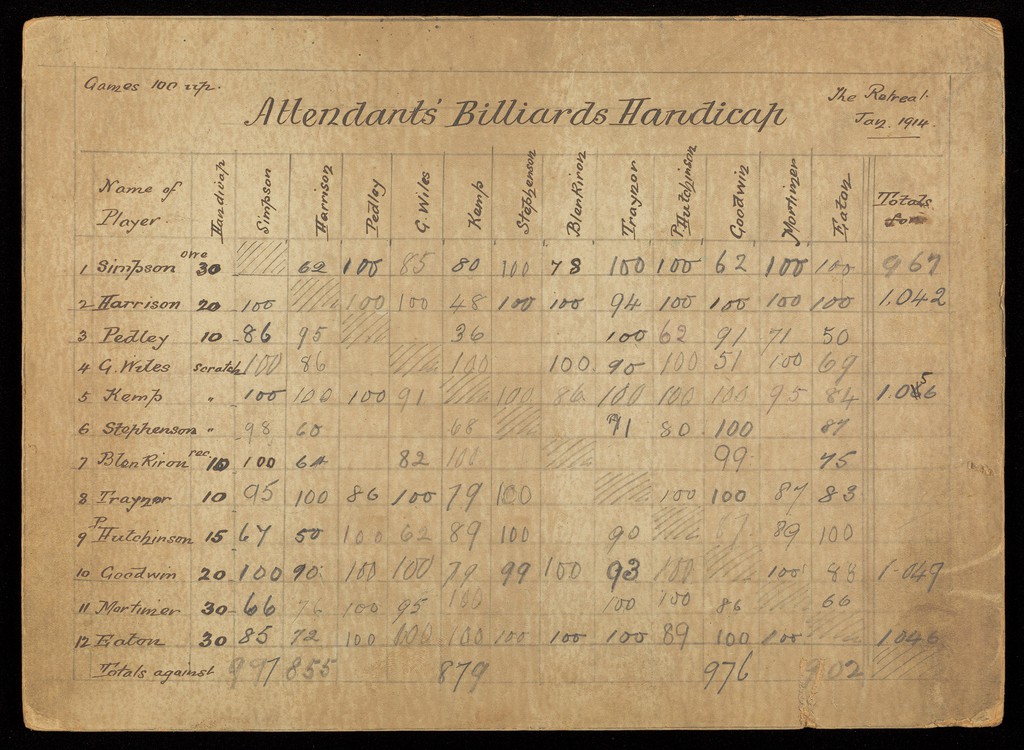 Games 100 up.
The Retreat.
Jan. 1914.
Attendants' Billiards Handicap
Name of Player. Handicap Simpson Harrison Pedley G. Wiles Kemp Stephenson Blenkiron Traynor P Hutchinson Goodwin Mortimer Eaton Totals for
1 Simpson owe 30 62 100 85 80 100 78 100 100 62 100 100 967
2 Harrison 20 100 100 100 48 100 100 94 100 100 100 100 1.042
3 Pedley 10 86 95 36 100 62 91 71 50
4 G. Wiles scratch 100 86 100 100. 90 100 51 100 69
5 Kemp " 100 100 100 91 100 86 100 100 100 95 84
6 Stephenson " 98 60 68 71 80 100 87
7 Blenkiron rec 10 100 64 82 100 99 75
8 Traynor 10 95 100 86 100 79 100 100 100 87 83
9 P. Hutchinson 15 67 50 100 62 89 100 90 89 100
10 Goodwin 20 100 90 100 100 79 99 100 93 100 100 88 1.047
11 Mortimer 30 66 76 100 95 100 100 100 86 66
12 Eaton 30 85 72 100 100 100 100 100 100 89 100 100 1.046
Totals against 997 855 879 976 902